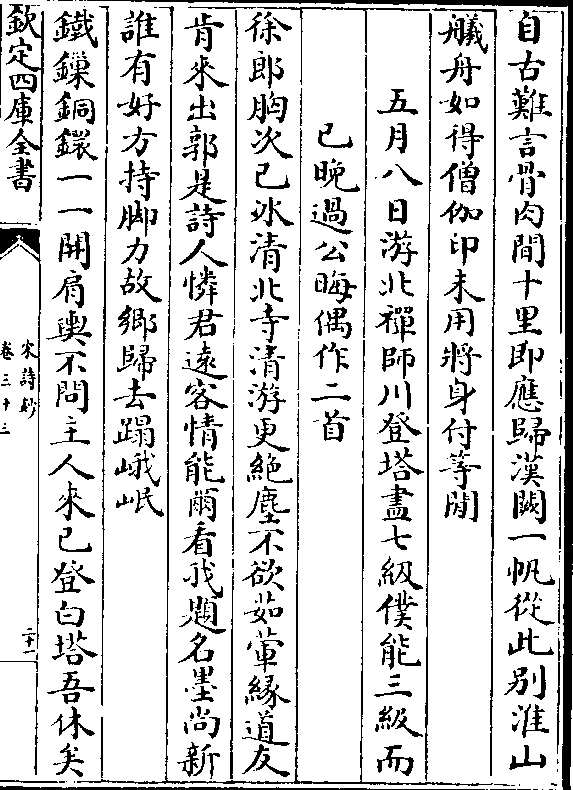 自古難言骨肉間十里即應歸漢闕一帆從此别淮山
艤舟如得僧伽印未用將身付等閒
五月八日游北禪師川登塔盡七級僕能三級而
已晚過公晦偶作二首
徐郎胸次已冰清北寺清游更絶塵不欲茹葷縁道友
肯來出郭是詩人憐君逺客情能爾看我題名墨尚新
誰有好方持脚力故鄉歸去蹋峨岷
鐵鏁銅鐶一一開肩輿不問主人來已登白塔吾休矣
欽定四庫全書
宋詩鈔
卷三十三
二十一